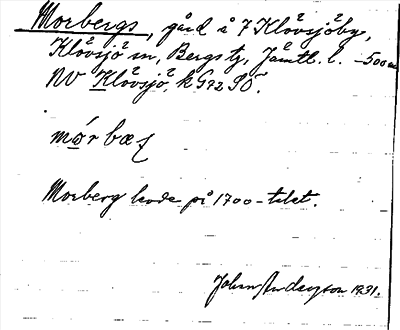 Morbergs, gård i 7 Klövsjöby,
Klövsjö sn, Bergs tg, Jämtl. l. -500 m
NV Klövsjö, k G72 SÖ.
Morberg levde på 1700-talet.
Johan Andersson 1931.